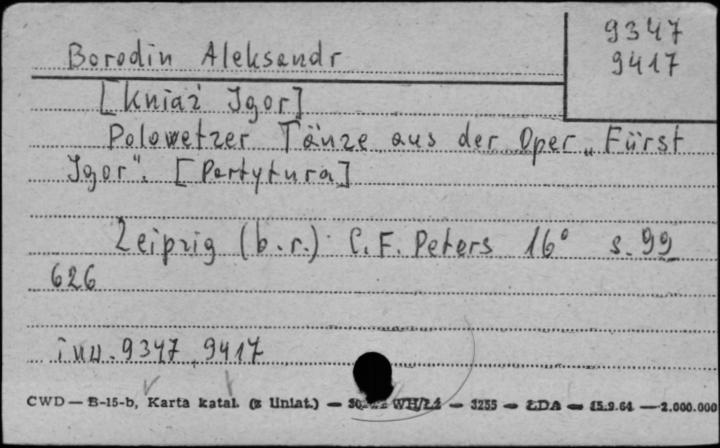 9347
9417
Borodin Aleksandr
[Kniaź Igor]
Polowetzer Tänze aus der Oper „Fürst
Igor". [Partytura]
Leipzig (b.r.) C.F. Peters 16° s. 99
626
inw. 9347, 9417
CWD — B-15-b, Karta katal. (z liniat.) — WH/Łż — 3255 — ŁDA — 15.9.61 — 2.000.000